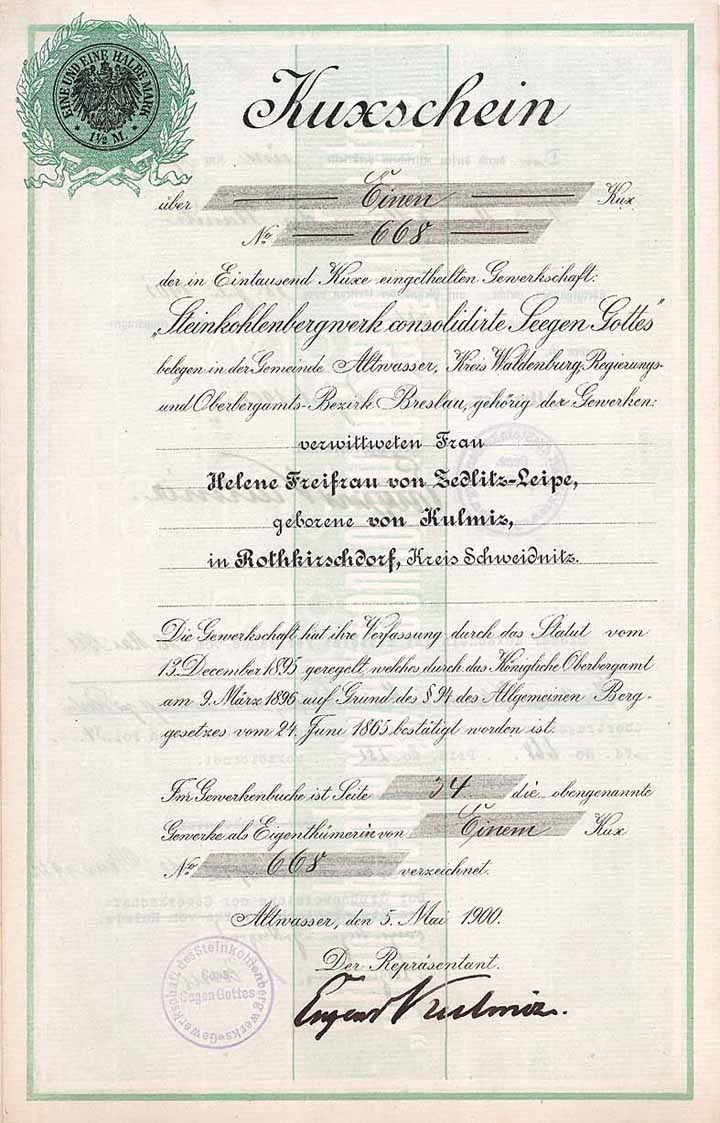 EINE UND EINE HALBE MARK
1½ M.
Kuxschein
über Einen Kux
No. 668
der in Eintausend Kuxe eingetheilten Gewerkschaft:
„Steinkohlenbergwerk consolidirte Seegen Gottes"
belegen in der Gemeinde Altwasser, Kreis Waldenburg, Regierungs-
und Oberbergamts-Bezirk Breslau, gehörig der Gewerken:
verwittweten Frau
Helene Freifrau von Zedlitz-Leipe,
geborene von Kulmiz,
in Rothkirschdorf, Kreis Schweidnitz.
Die Gewerkschaft hat ihre Verfassung durch das Statut vom
13. December 1895 geregelt, welches durch das Königliche Oberbergamt
am 9. März 1896 auf Grund des § 94 des Allgemeinen Berg-
gesetzes vom 24. Juni 1865 bestätigt worden ist.
Im Gewerkenbuche ist Seite 34 die obengenannte
Gewerke als Eigenthümerin von Einem Kux
No. 668 verzeichnet.
Altwasser, den 5. Mai 1900.
Der Repräsentant.
Eugen v Kulmiz.
Gewerkschaft des Steinkohlenbergwerks
Cons.
Segen Gottes